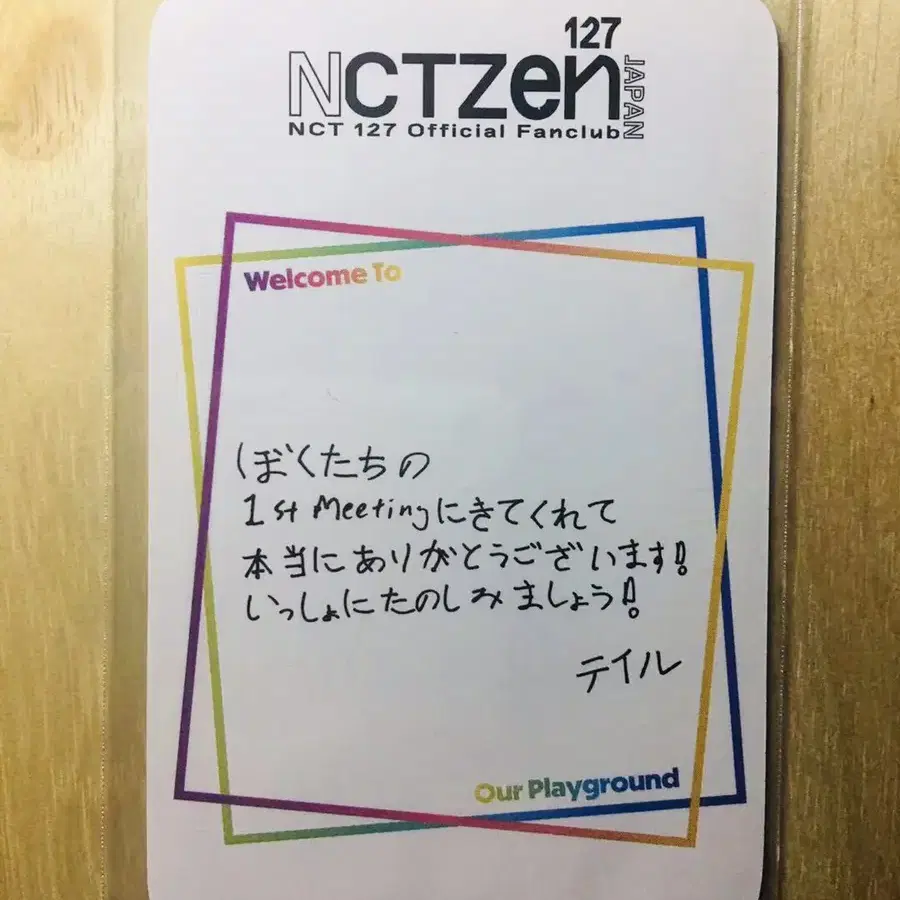 127
NCTzen
JAPAN
NCT 127 Official Fanclub
Welcome To
ぼくたちの
1st Meetingにきてくれて
本当にありがとうございます!!
いっしょにたのしみましょう!!
テイル
Our Playground